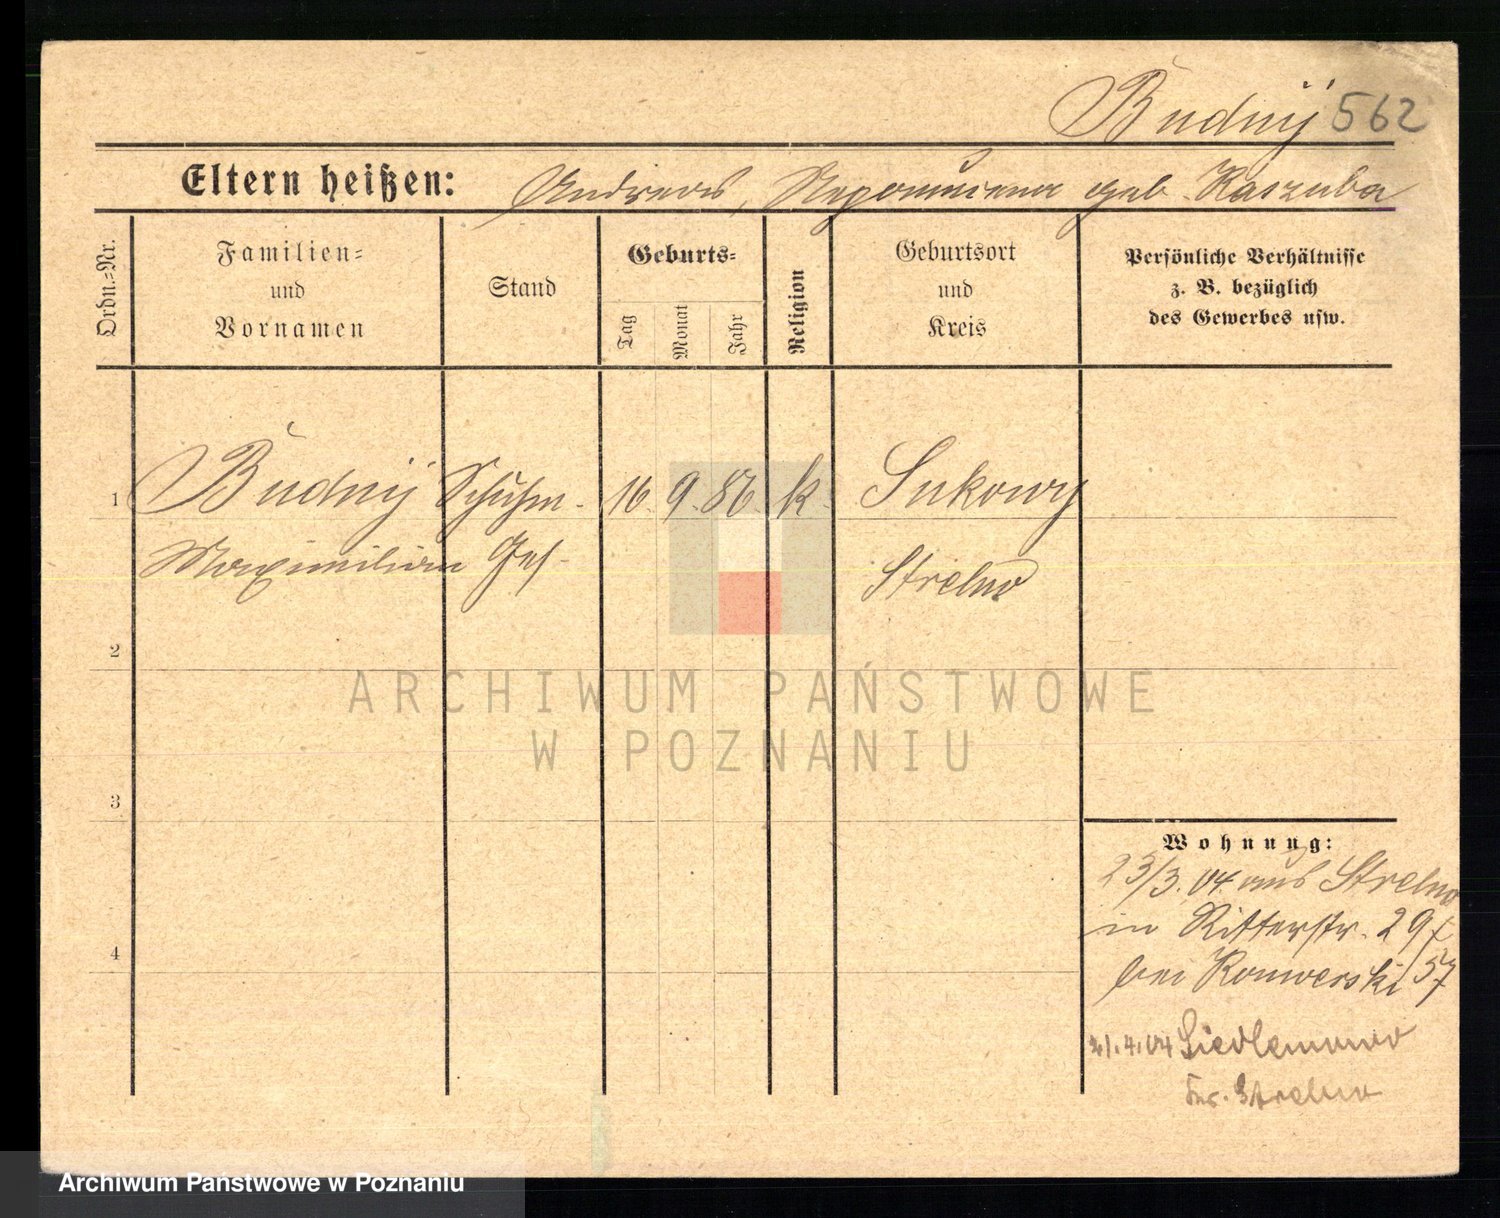 Budny 562
Eltern heißen: Andreas, Nepomucena geb. Kaszuba
Ordn.-Nr.
Familien-
und
Vornamen
Stand
Geburts-
Tag
Monat
Jahr
Religion
Geburtsort
und
Kreis
Persönliche Verhältnisse
z. B. bezüglich
des Gewerbes usw.
1 Budny Schuhm. 16. 9. 86. k. Sukowy
Maximilian Ges. Strelno
2
3
4
Wohnung:
23/3. 04. aus Strelno
in Ritterstr. 29
bei
21.4.04
Kr. Strelno
ARCHIWUM PAŃSTWOWE
W POZNANIU
Archiwum Państwowe w Poznaniu